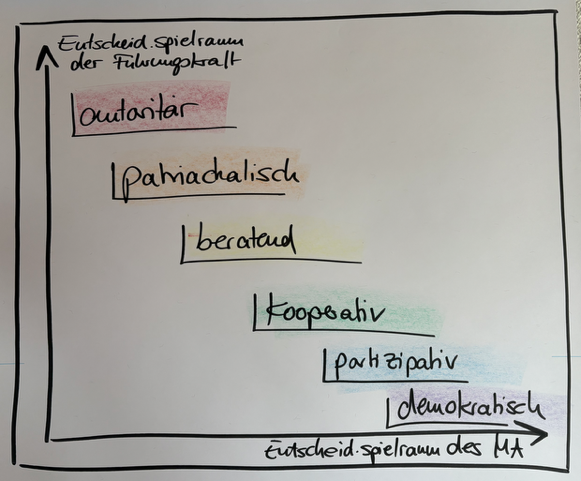 Entscheid.spielraum
der Führungskraft
autoritär
patriachalisch
beratend
kooperativ
partizipativ
demokratisch
Entscheid.spielraum des MA